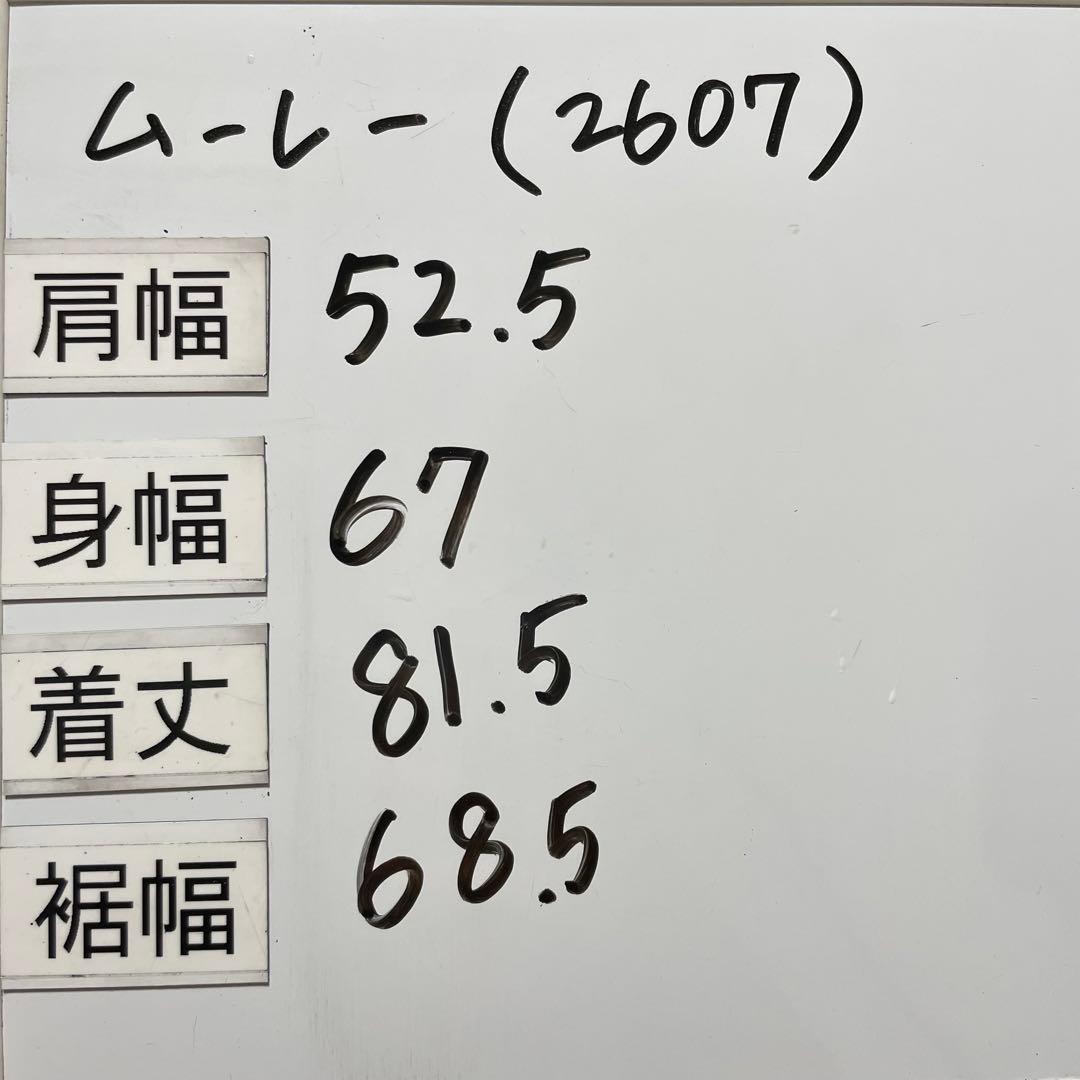 ムーレー(2607)
肩幅 52.5
身幅 67
着丈 81.5
裾幅 68.5